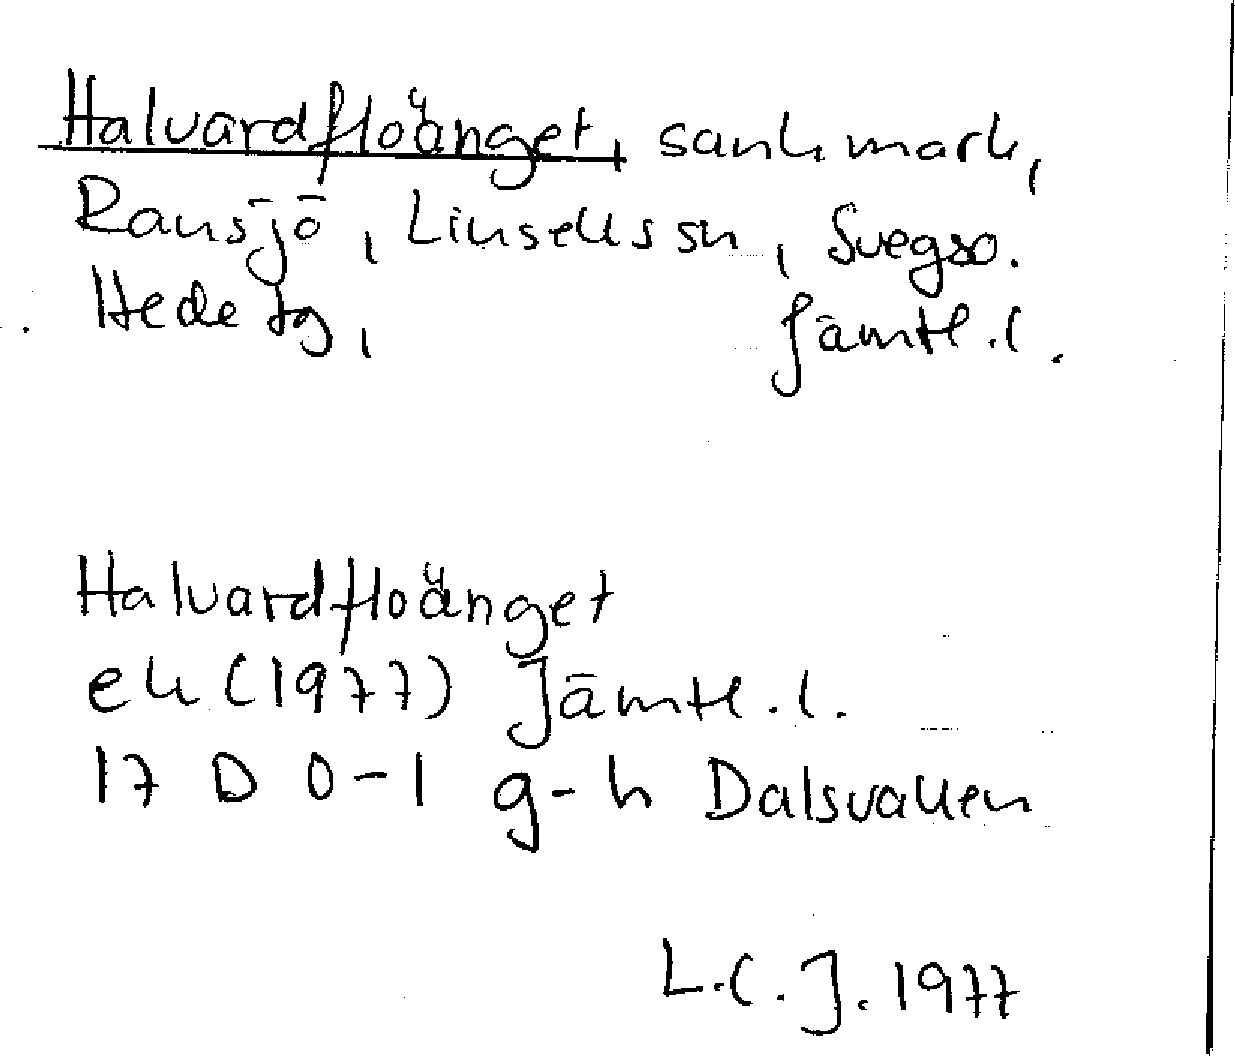 Halvardfloänget, sank mark,
Ransjö, Linsells sn, Svegs o.
Hede tg, Jämtl. l.
Halvardfloänget
ek (1977) Jämtl. l.
17 D 0-1 g-h Dalsvallen
L.C.J. 1977